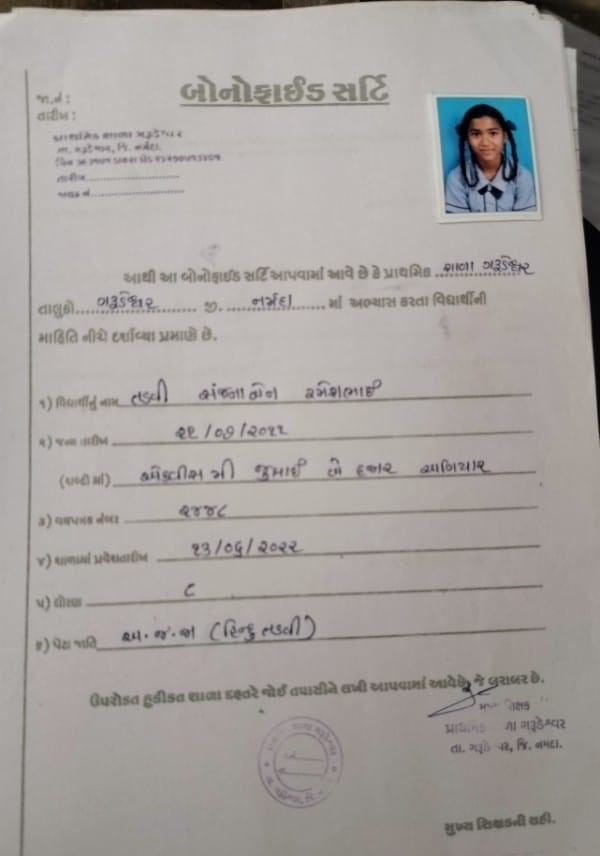 બોનોફાઈડ સર્ટિ
જા.નં :
તારીખ :
પ્રાથમિક શાળા ગરૂડેશ્વર
તા. ગરૂડેશ્વર, જિ. નર્મદા.
તારીખ
જાવક નં.
આથી આ બોનોફાઈડ સર્ટિ આપવામાં આવે છે કે પ્રાથમિક શાળા ગરૂડેશ્વર
તાલુકો. ગરૂડેશ્વર જી. નર્મદા માં અભ્યાસ કરતા વિદ્યાર્થીની
માહિતિ નીચે દર્શાવ્યા પ્રમાણે છે.
૧) વિદ્યાર્થીનું નામ તડવી સંજનાબેન રમેશભાઈ
૨) જન્મ તારીખ ૨૧/૦૭/૨૦૧૧
(શબ્દોમાં) એકવીસ મી જુલાઈ બે હજાર અગિયાર
૩) વયપત્રક નંબર ૨૪૪૮
૪) શાળામાં પ્રવેશ તારીખ ૧૩/૦૬/૨૦૨૨
૫) ધોરણ ૮
૬) પેટા જાતિ અ.જ.જા (હિન્દુ તડવી)
ઉપરોક્ત હકીકત શાળા દફ્તરે જોઈ તપાસીને લખી આપવામાં આવેછે, જે બરાબર છે.
શિક્ષક
ગરૂડેશ્વર
તા. જિ. નર્મદા.
મુખ્ય શિક્ષકની સહી.